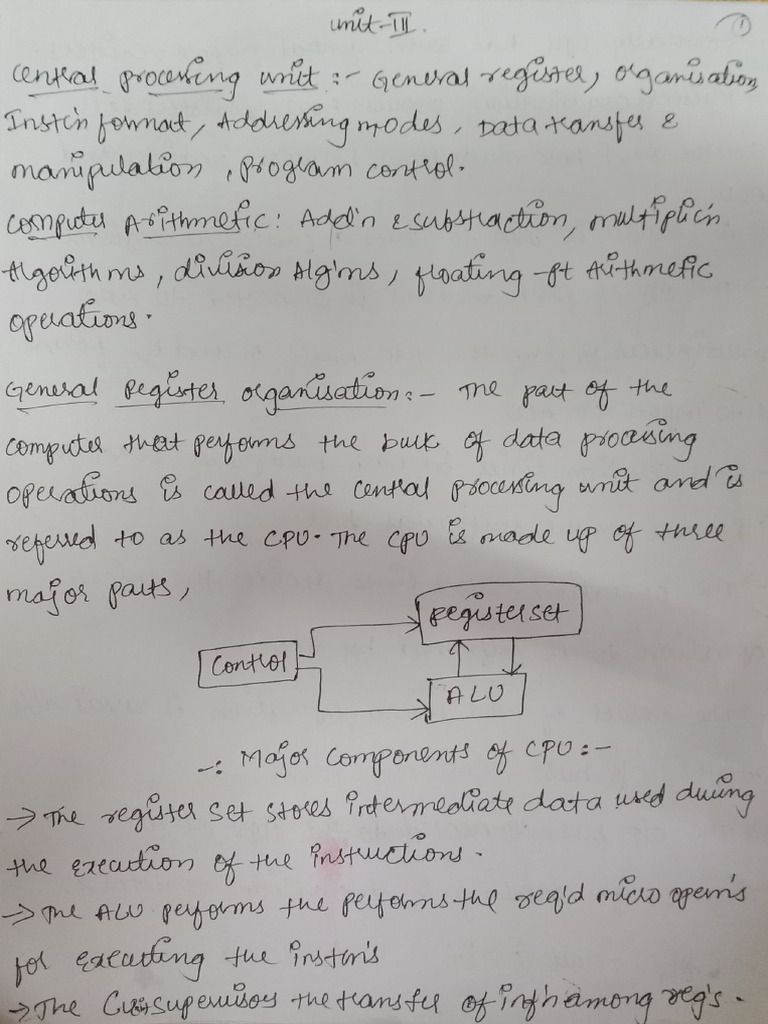 unit-III.
1
Central processing unit :- General register, organisation,
Inst'n format, Addressing modes, Data transfer &
manipulation, program control.
Computer Arithmetic: Add'n & substraction, multiplic'n
Algorithms, division Alg'ms, floating-pt Arithmetic
operations.
General Register organisation:- The part of the
computer that performs the bulk of data processing
operations is called the central processing unit and is
referred to as the CPU. The CPU is made up of three
major parts,
Register set
Control
ALU
-: Major components of CPU:-
→ The register set stores intermediate data used during
the execution of the instructions.
→ The ALU performs the performs the req'd micro opern's
for executing the instrn's
→ The supervisos the transfer of inf'n among reg's.